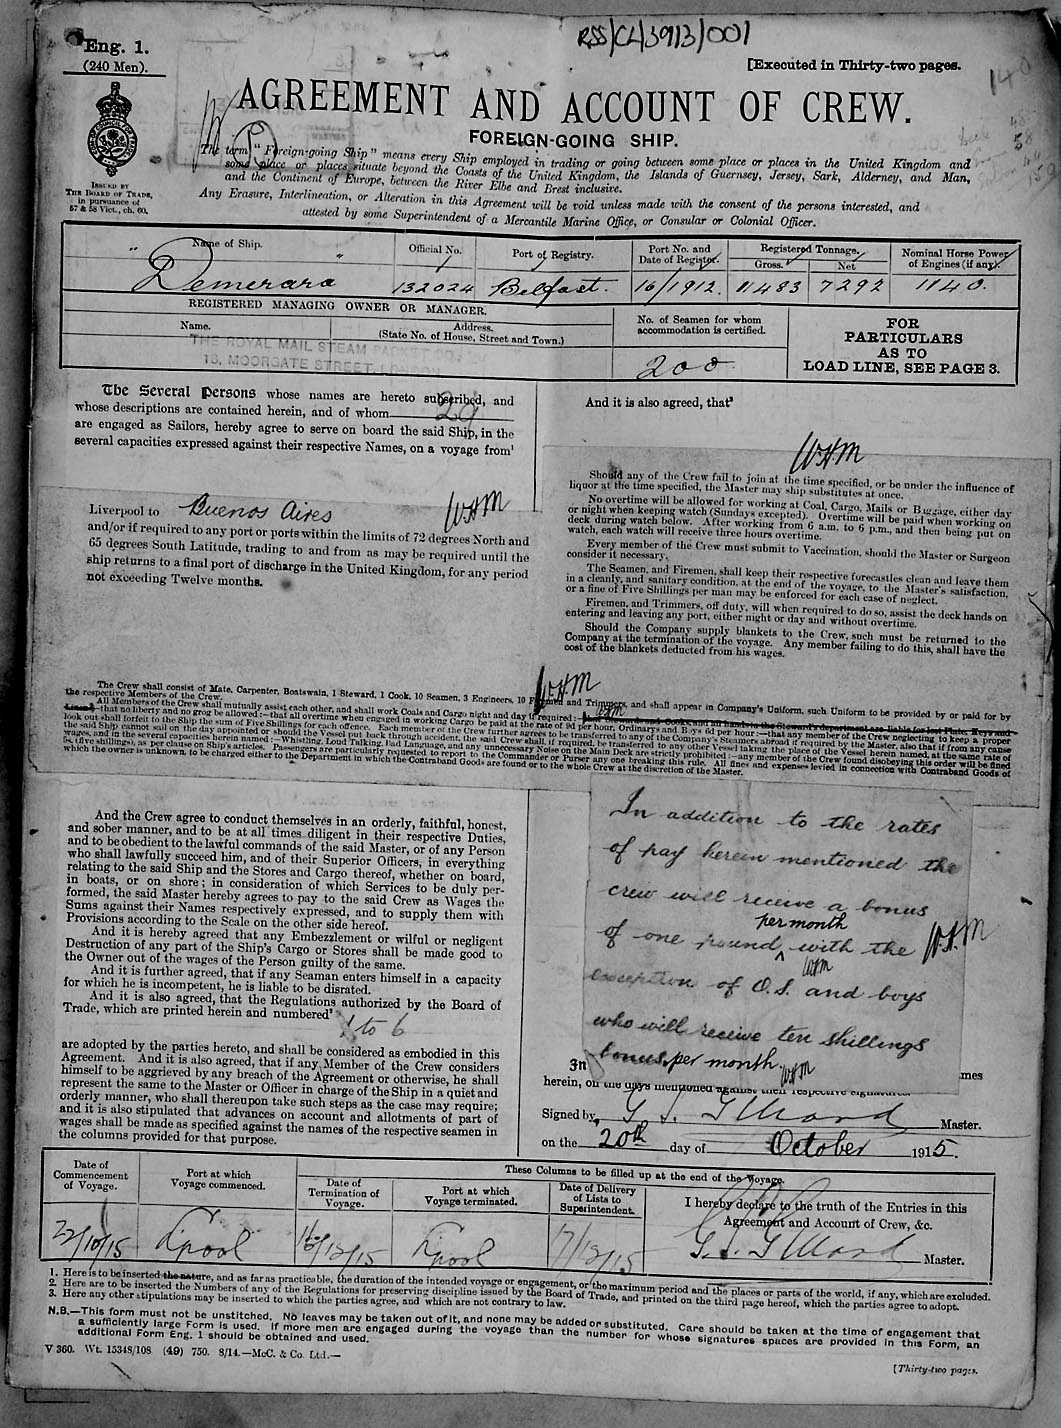 RSS/CL/3913/001
Eng. 1.
(240 Men).
[Executed in Thirty-two pages.
140
AGREEMENT AND ACCOUNT OF CREW.
FOREIGN-GOING SHIP.
The term "Foreign-going Ship" means every Ship employed in trading or going between some place or places in the United Kingdom and
some place or places situate beyond the Coasts of the United Kingdom, the Islands of Guernsey, Jersey, Sark, Alderney, and Man,
and the Continent of Europe, between the River Elbe and Brest inclusive.
Any Erasure, Interlineation, or Alteration in this Agreement will be void unless made with the consent of the persons interested, and
attested by some Superintendent of a Mercantile Marine Office, or Consular or Colonial Officer.
ISSUED BY
THE BOARD OF TRADE,
in pursuance of
57 & 58 Vict., ch. 60.
Name of Ship. Official No. Port of Registry. Port No. and Date of Register. Registered Tonnage. Gross. Net Nominal Horse Power of Engines (if any).
"Demerara" 132024 Belfast. 16/1912. 11483 7292 1140.
REGISTERED MANAGING OWNER OR MANAGER.
Name. Address. (State No. of House, Street and Town.)
THE ROYAL MAIL STEAM PACKET CO.
18, MOORGATE STREET, LONDON
No. of Seamen for whom accommodation is certified.
200
FOR
PARTICULARS
AS TO
LOAD LINE, SEE PAGE 3.
The Several Persons whose names are hereto subscribed, and
whose descriptions are contained herein, and of whom 29
are engaged as Sailors, hereby agree to serve on board the said Ship, in the
several capacities expressed against their respective Names, on a voyage from¹
Liverpool to Buenos Aires WHM
and/or if required to any port or ports within the limits of 72 degrees North and
65 degrees South Latitude, trading to and from as may be required until the
ship returns to a final port of discharge in the United Kingdom, for any period
not exceeding Twelve months.
And it is also agreed, that³
WHM
Should any of the Crew fail to join at the time specified, or be under the influence of
liquor at the time specified, the Master may ship substitutes at once.
No overtime will be allowed for working at Coal, Cargo, Mails or Baggage, either day
or night when keeping watch (Sundays excepted). Overtime will be paid when working on
deck during watch below. After working from 6 a.m. to 6 p.m., and then being put on
watch, each watch will receive three hours overtime.
Every member of the Crew must submit to Vaccination, should the Master or Surgeon
consider it necessary.
The Seamen, and Firemen, shall keep their respective forecastles clean and leave them
in a cleanly, and sanitary condition, at the end of the voyage, to the Master's satisfaction,
or a fine of Five Shillings per man may be enforced for each case of neglect.
Firemen, and Trimmers, off duty, will when required to do so, assist the deck hands on
entering and leaving any port, either night or day and without overtime.
Should the Company supply blankets to the Crew, such must be returned to the
Company at the termination of the voyage. Any member failing to do this, shall have the
cost of the blankets deducted from his wages.
WHM
The Crew shall consist of Mate, Carpenter, Boatswain, 1 Steward, 1 Cook, 10 Seamen, 3 Engineers, 10 Firemen and Trimmers, and shall appear in Company's Uniform, such Uniform to be provided by or paid for by
the respective Members of the Crew.
All Members of the Crew shall mutually assist each other, and shall work Coals and Cargo night and day if required :—
that no liberty and no grog be allowed :—that all overtime when engaged in working Cargo be paid at the rate of 9d per hour, Ordinarys and Boys 6d per hour :—that any member of the Crew neglecting to keep a proper
look out shall forfeit to the Ship the sum of Five Shillings for each offence. Each member of the Crew further agrees to be transferred to any of the Company's Steamers abroad if required by the Master, also that if from any cause
the said Ship cannot sail on the day appointed or should the Vessel put back through accident, the said Crew shall, if required, be transferred to any other Vessel taking the place of the Vessel herein named, at the same rate of
wages, and in the several capacities herein named :—Whistling, Loud Talking, Bad Language, and any unnecessary Noise on the Main Deck are strictly prohibited :—any member of the Crew found disobeying this order will be fined
5s. (five shillings), as per clause on Ship's articles. Passengers are particularly requested to report to the Commander or Purser any one breaking this rule. All fines and expenses levied in connection with Contraband Goods of
which the owner is unknown, to be charged either to the Department in which the Contraband Goods are found or to the whole Crew at the discretion of the Master.
And the Crew agree to conduct themselves in an orderly, faithful, honest,
and sober manner, and to be at all times diligent in their respective Duties,
and to be obedient to the lawful commands of the said Master, or of any Person
who shall lawfully succeed him, and of their Superior Officers, in everything
relating to the said Ship and the Stores and Cargo thereof, whether on board,
in boats, or on shore; in consideration of which Services to be duly per-
formed, the said Master hereby agrees to pay to the said Crew as Wages the
Sums against their Names respectively expressed, and to supply them with
Provisions according to the Scale on the other side hereof.
And it is hereby agreed that any Embezzlement or wilful or negligent
Destruction of any part of the Ship's Cargo or Stores shall be made good to
the Owner out of the wages of the Person guilty of the same.
And it is further agreed, that if any Seaman enters himself in a capacity
for which he is incompetent, he is liable to be disrated.
And it is also agreed, that the Regulations authorized by the Board of
Trade, which are printed herein and numbered² 1 to 6
are adopted by the parties hereto, and shall be considered as embodied in this
Agreement. And it is also agreed, that if any Member of the Crew considers
himself to be aggrieved by any breach of the Agreement or otherwise, he shall
represent the same to the Master or Officer in charge of the Ship in a quiet and
orderly manner, who shall thereupon take such steps as the case may require;
and it is also stipulated that advances on account and allotments of part of
wages shall be made as specified against the names of the respective seamen in
the columns provided for that purpose.
In addition to the rates
of pay herein mentioned the
crew will receive a bonus
per month
of one pound with the WHM
exception of O.S. and boys
who will receive ten shillings
bonus per month. WHM
In
herein, on the days mentioned against their respective signatures.
Signed by G. S. Gillard Master.
on the 20th day of October 1915.
Date of Commencement of Voyage. Port at which Voyage commenced. These Columns to be filled up at the end of the Voyage.
Date of Termination of Voyage. Port at which Voyage terminated. Date of Delivery of Lists to Superintendent.
I hereby declare to the truth of the Entries in this
Agreement and Account of Crew, &c.
22/10/15 L'pool 16/12/15 L'pool 17/12/15 G. S. Gillard Master.
1. Here is to be inserted the nature, and as far as practicable, the duration of the intended voyage or engagement, or the maximum period and the places or parts of the world, if any, which are excluded.
2. Here are to be inserted the Numbers of any of the Regulations for preserving discipline issued by the Board of Trade, and printed on the third page hereof, which the parties agree to adopt.
3. Here any other stipulations may be inserted to which the parties agree, and which are not contrary to law.
N.B.—This form must not be unstitched. No leaves may be taken out of it, and none may be added or substituted. Care should be taken at the time of engagement that
a sufficiently large Form is used. If more men are engaged during the voyage than the number for whose signatures spaces are provided in this Form, an
additional Form Eng. 1 should be obtained and used.
V 360. Wt. 15348/108 (49) 750. 8/14.—McC. & Co. Ltd.—
[Thirty-two pages.